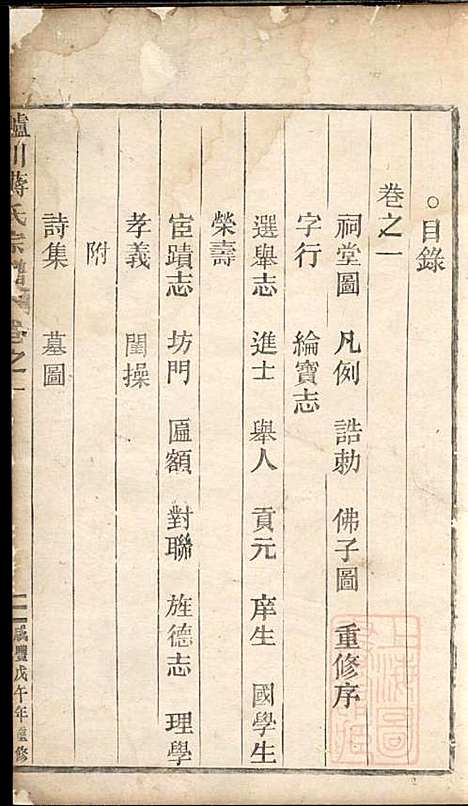 ○目錄
卷之一
祠堂圖 凡例 誥勅 佛子圖 重修序
字行 綸寶志
選舉志 進士 舉人 貢元 庠生 國學生
榮壽
宦蹟志 坊門 匾額 對聯 旌德志 理學
孝義 閨操
附
詩集 墓圖
川蔣氏宗譜 卷之一
咸豐戊午年重修
上海圖